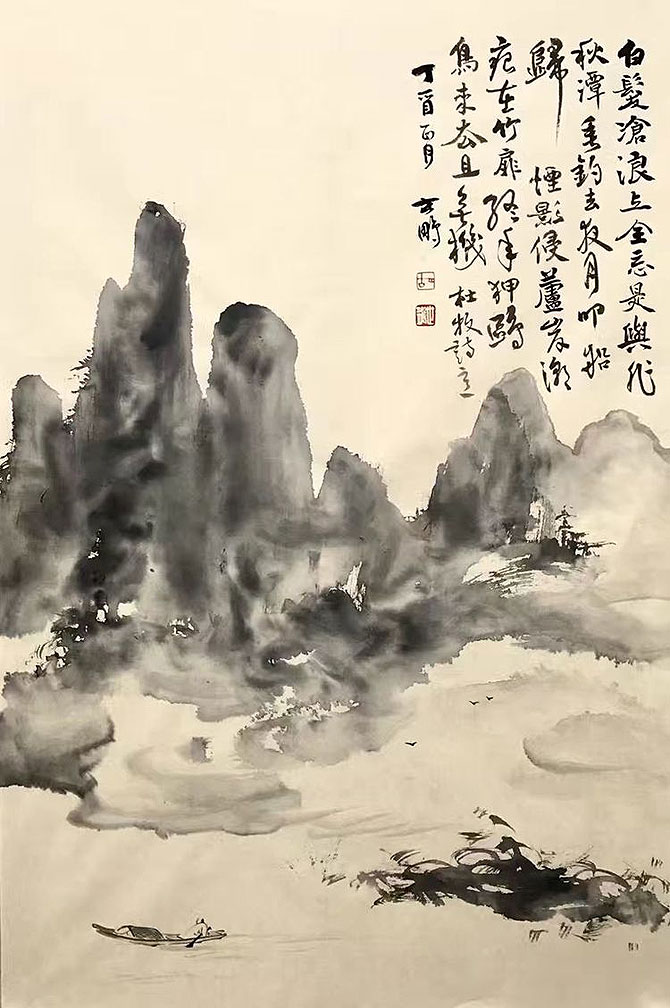 白髮滄浪上全忘是與非
秋潭垂釣去夜月叩船
歸 煙影侵蘆岸潮
痕在竹扉終年狎鷗
鳥來去且無機 杜牧詩意
丁酉正月 鵬